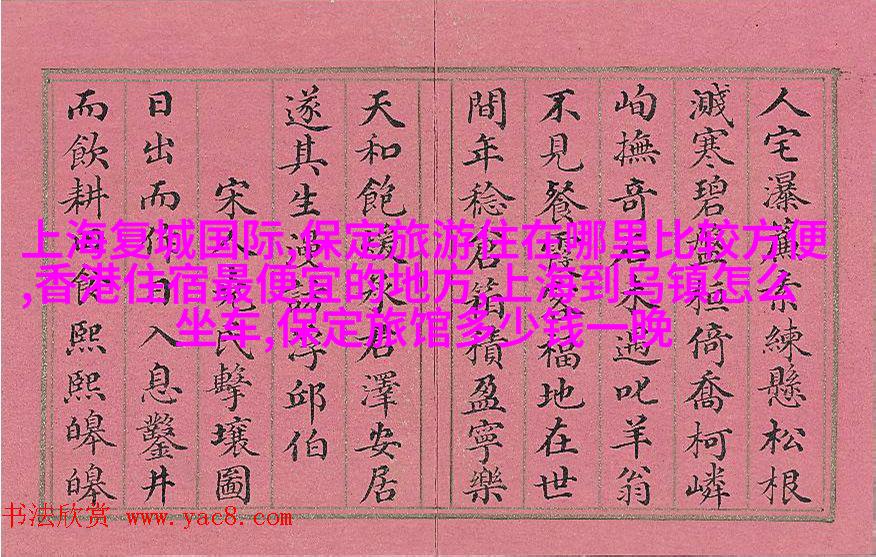 人宅瀑素練懸松根
濺寒碧盤倚喬柯嶙
峋撫奇石未遇叱羊翁
不見餐霞福地在世
間年稔倉箱積盈寧樂
天和飽煖承君澤安居
遂其生漫訪浮邱伯
宋人堯民擊壤圖
日出而作日入息鑿井
而飲耕而食熙熙皞皞
上海复城国际,保定旅游住在哪里比较方便
,香港住宿最便宜的地方,上海到乌镇怎么
坐车,保定旅馆多少钱一晚
书法欣赏 www.yac8.com